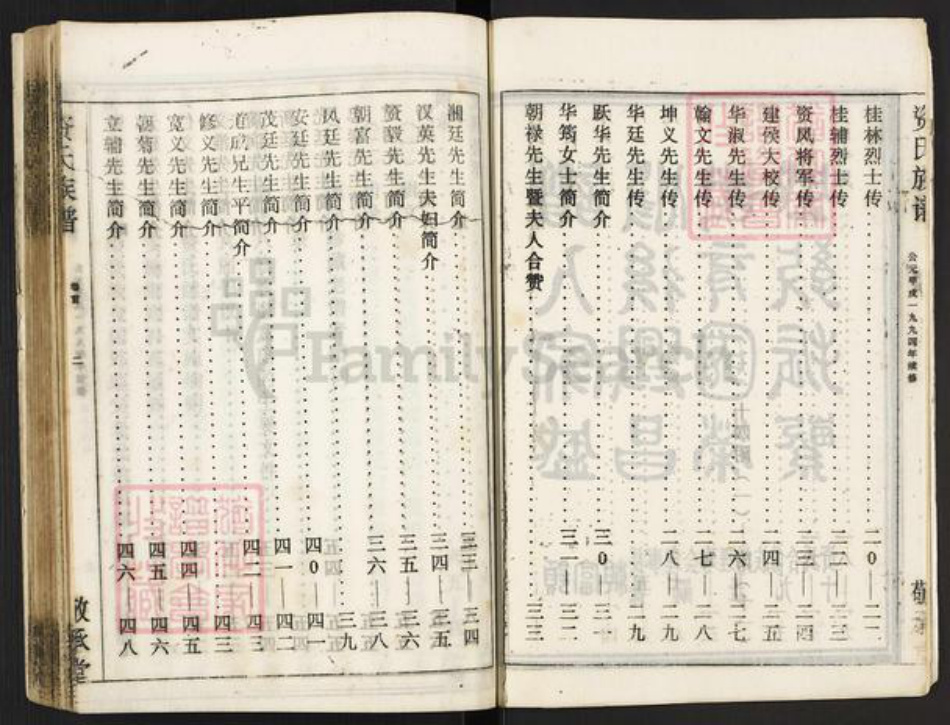 资氏族谱
公元甲戌一九九四年续修
敬承
桂林烈士传……二0—二一
桂辅烈士传……二二—二三
资凤将军传……二三—二四
建侯大校传……二四—二五
华淑先生传……二六—二七
翰文先生传……二七—二八
坤义先生传……二八—二九
华廷先生传……二九
跃华先生简介……三0—三一
华筠女士简介……三一—三二
朝禄先生暨夫人合赞……三三
湘廷先生简介……三三—三四
汉英先生夫妇简介……三四—三五
资毅先生简介……三五—三六
朝富先生简介……三六—三八
凤廷先生简介……三九
安廷先生简介……四0—四一
茂廷先生简介……四一—四二
先生平简介……四二—四三
修文先生简介……四三
宽文先生简介……四四—四五
朝菊先生简介……四五—四六
立辅先生简介……四六—四八
资氏族谱
卷首
二
敬承堂
FamilySearch